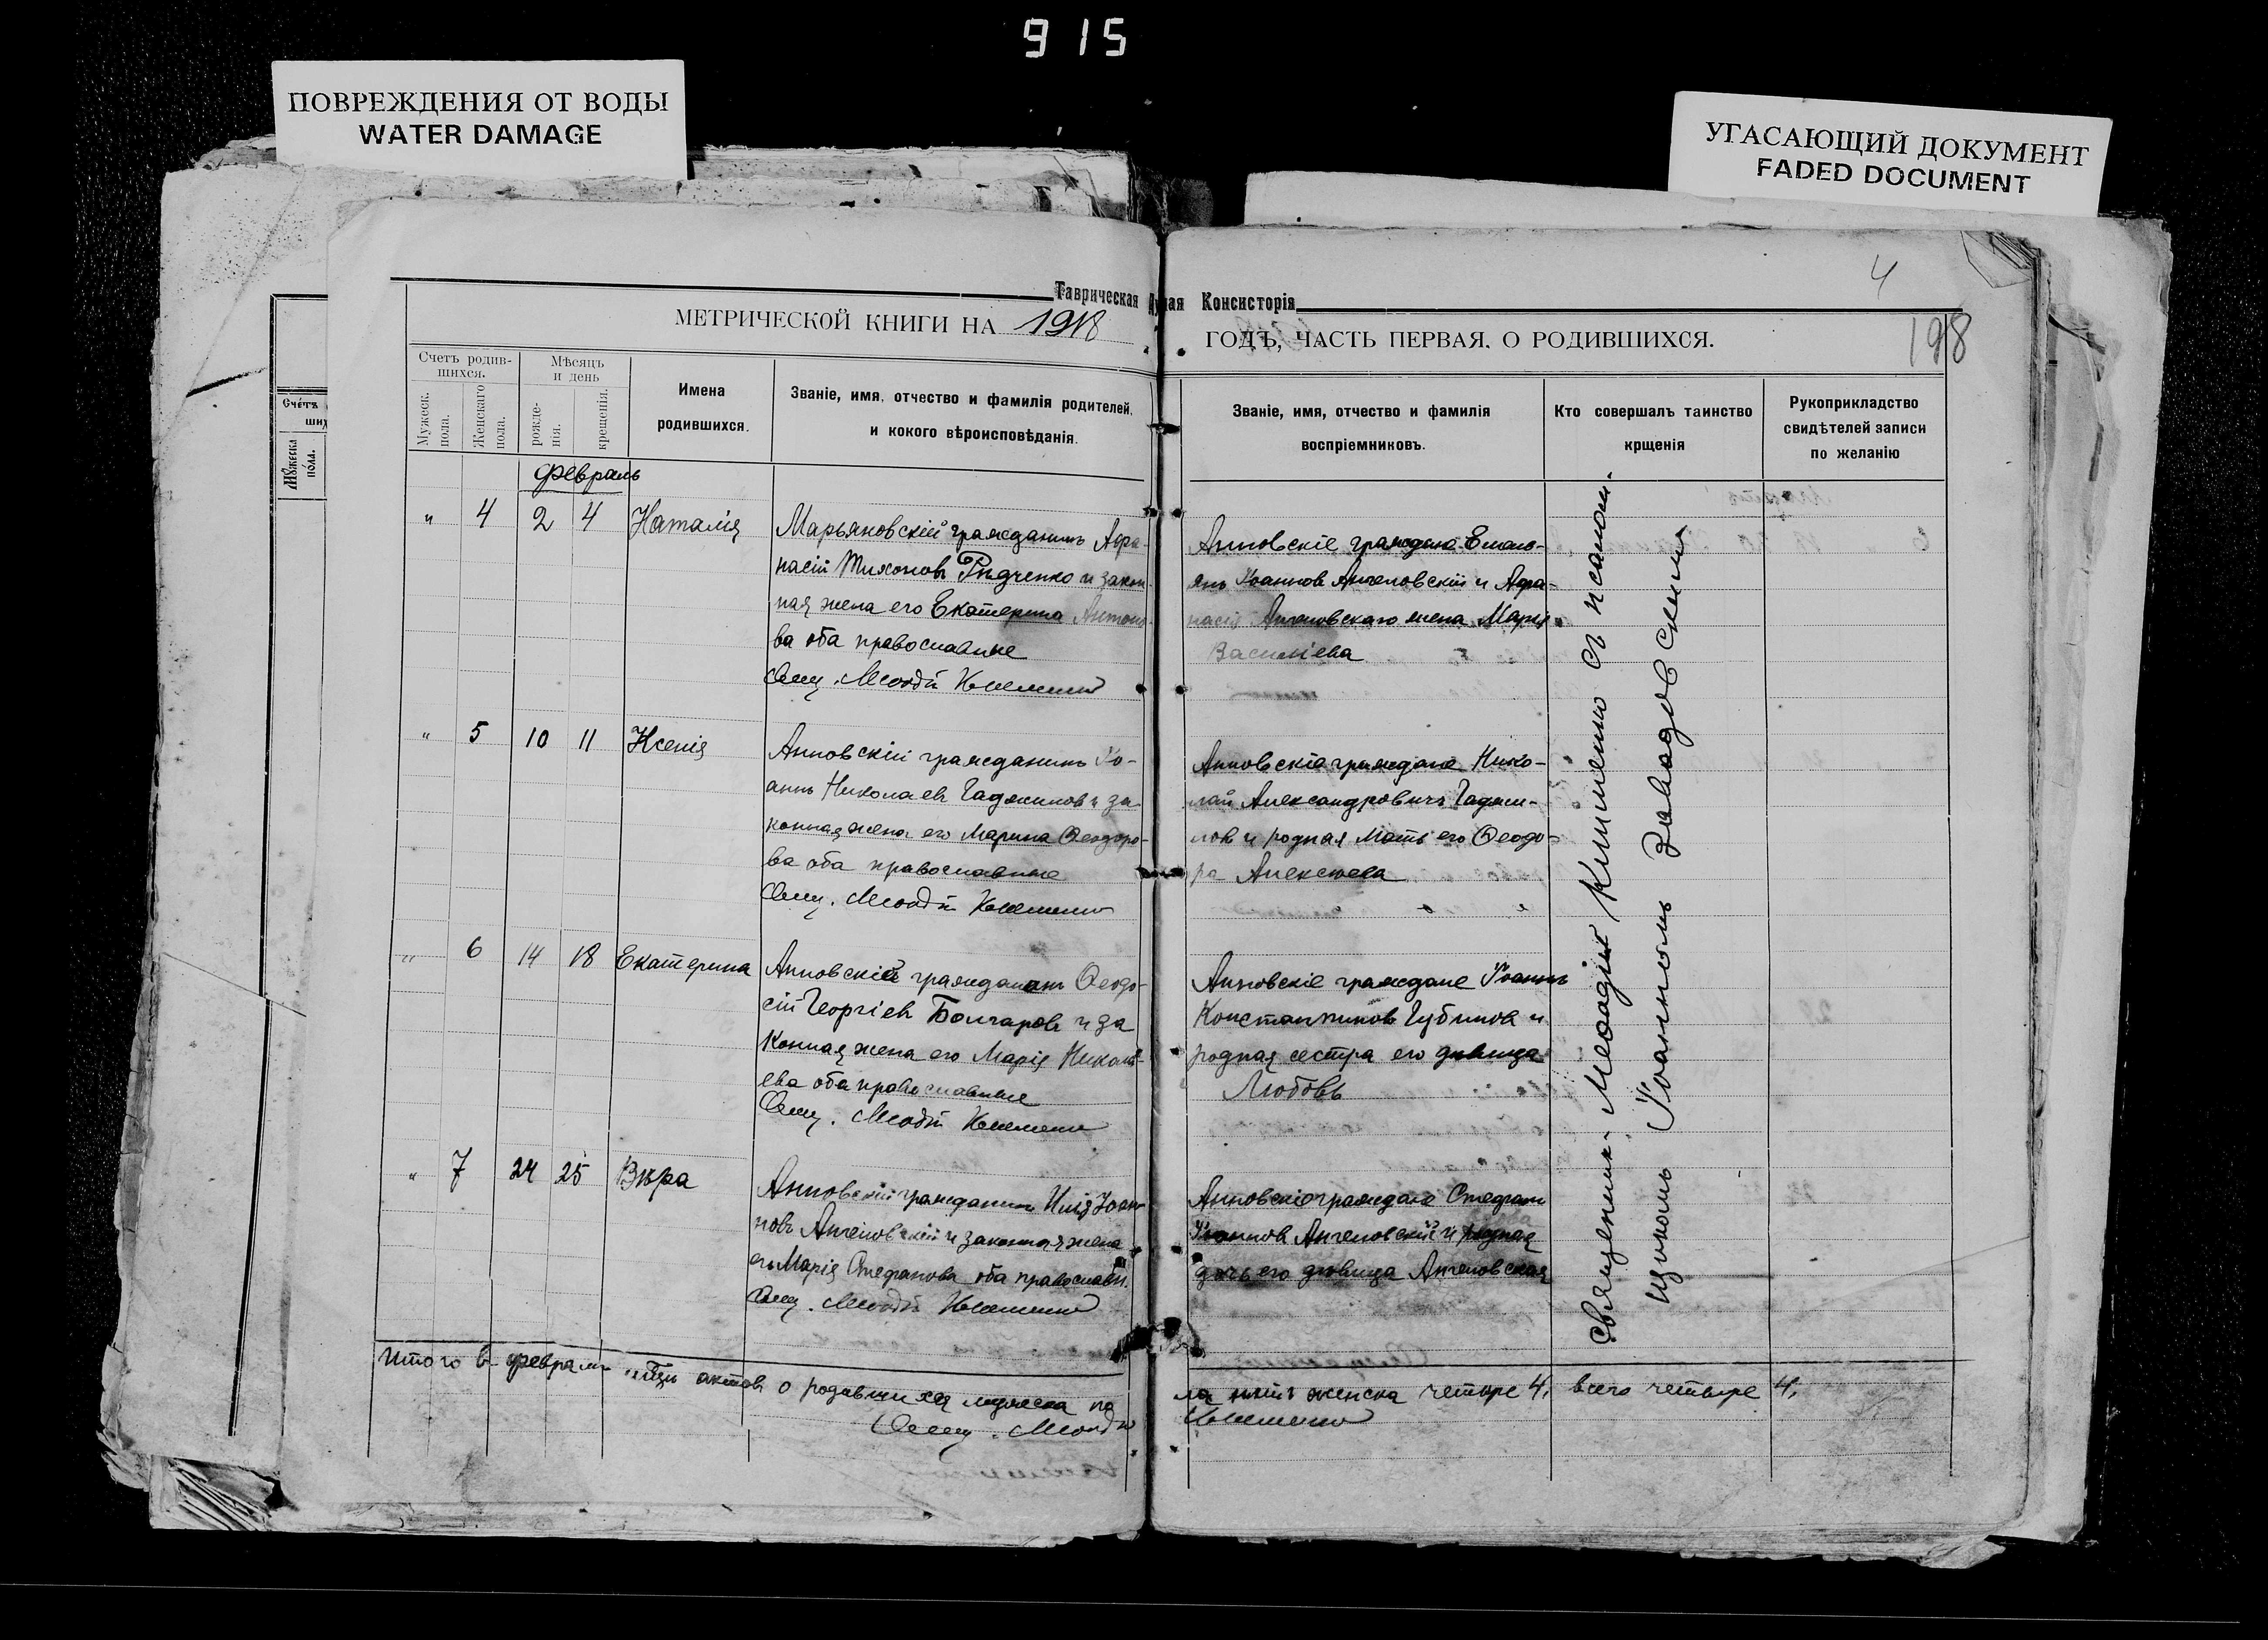 915
ПОВРЕЖДЕНИЯ ОТ ВОДЫ
WATER DAMAGE
УГАСАЮЩИЙ ДОКУМЕНТ
FADED DOCUMENT
4
Таврическая Духовная Консисторія
МЕТРИЧЕСКОЙ КНИГИ НА 1918 ГОДЪ, ЧАСТЬ ПЕРВАЯ, О РОДИВШИХСЯ.
1918
Счетъ родив-
шихся.
Мужеск. пола.
Женскаго пола.
Мѣсяцъ
и день
рожде-
нія.
крещенія.
Имена
родившихся.
Званіе, имя, отчество и фамилія родителей,
и кокого вѣроисповѣданія.
Званіе, имя, отчество и фамилія
воспріемниковъ.
Кто совершалъ таинство
крщенія
Рукоприкладство
свидѣтелей записи
по желанію
Счетъ
ших
Мужеска
пола.
Февраль
" 4 2 4 Наталія
Марьяновскій гражданинъ Афа-
насій Тихоновъ Рѣдченко и закон-
ная жена его Екатерина Антоно-
ва оба православные
Свящ. Меѳодій Клименко
Анновскіе граждане Емель-
янъ Іоанновъ Ангеловскій и Афа-
насія Ангеловскаго жена Марія
Василіева
" 5 10 11 Ксенія
Анновскій гражданинъ Іо-
аннъ Николаевъ Гаджиновъ и за-
конная жена его Марина Ѳеодоро-
ва оба православные
Свящ. Меѳодій Клименко
Анновскіе граждане Нико-
лай Александровичъ Гаджи-
новъ и родная мать его Ѳеодо-
ра Алексѣева
" 6 14 18 Екатерина
Анновскій гражданинъ Ѳеодо-
сій Георгіевъ Болгаровъ и за
конная жена его Марія Никола-
ева оба православные
Свящ. Меѳодій Клименко
Анновскіе граждане Іоаннъ
Константиновъ Губиновъ и
родная сестра его дѣвица
Любовь
" 7 24 25 Вѣра
Анновскій гражданинъ Илія Іоан-
новъ Ангеловскій и законная жена
его Марія Стефанова оба православн.
Свящ. Меѳодій Клименко
Анновскіе граждане Стефанъ
Іоанновъ Ангеловскій и родная
дочь его дѣвица Ангеловская
Священник. Меѳодій Клименко съ псалом-
щикомъ Іоанномъ Завадовскимъ
Итого в феврале актов о родившихся мужеска по
ла нѣтъ женска четыре 4, всего четыре 4,
Свящ. Меѳодій Клименко